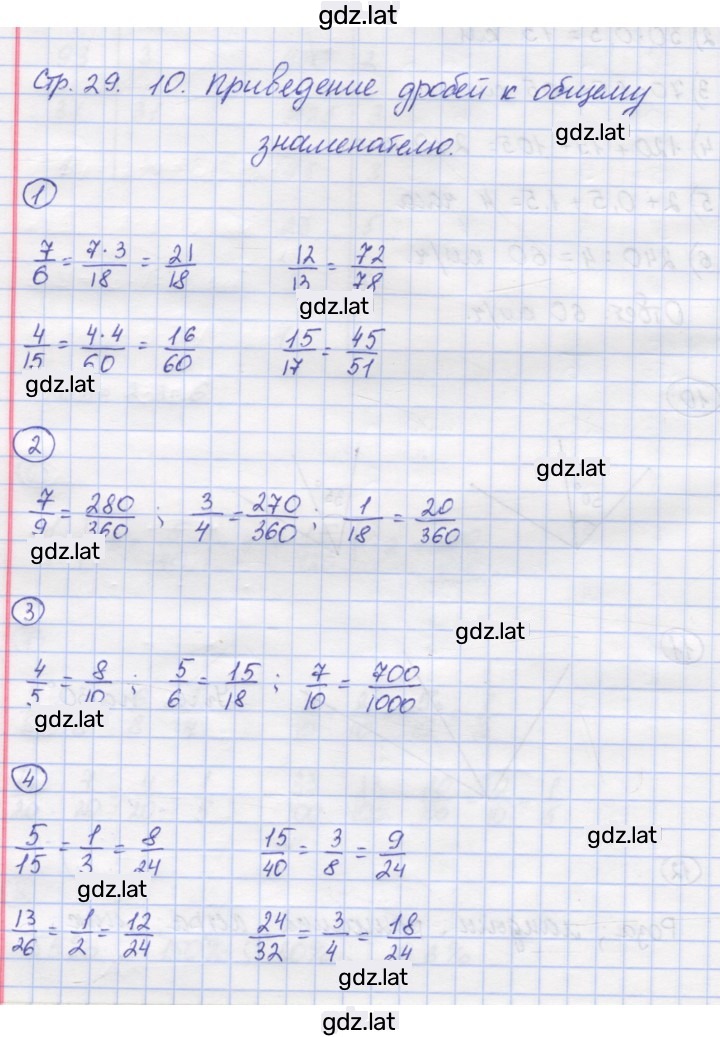 gdz.lat
Стр. 29. 10. Приведение дробей к общему
знаменателю.
gdz.lat
1
7/6 = 7·3/18 = 21/18   12/13 = 72/78
gdz.lat
4/15 = 4·4/60 = 16/60   15/17 = 45/51
gdz.lat
2
gdz.lat
7/9 = 280/360 ; 3/4 = 270/360 ; 1/18 = 20/360
gdz.lat
3
gdz.lat
4/5 = 8/10 ; 5/6 = 15/18 ; 7/10 = 700/1000
gdz.lat
4
5/15 = 1/3 = 8/24   15/40 = 3/8 = 9/24
gdz.lat
gdz.lat
13/26 = 1/2 = 12/24   24/32 = 3/4 = 18/24
gdz.lat
gdz.lat